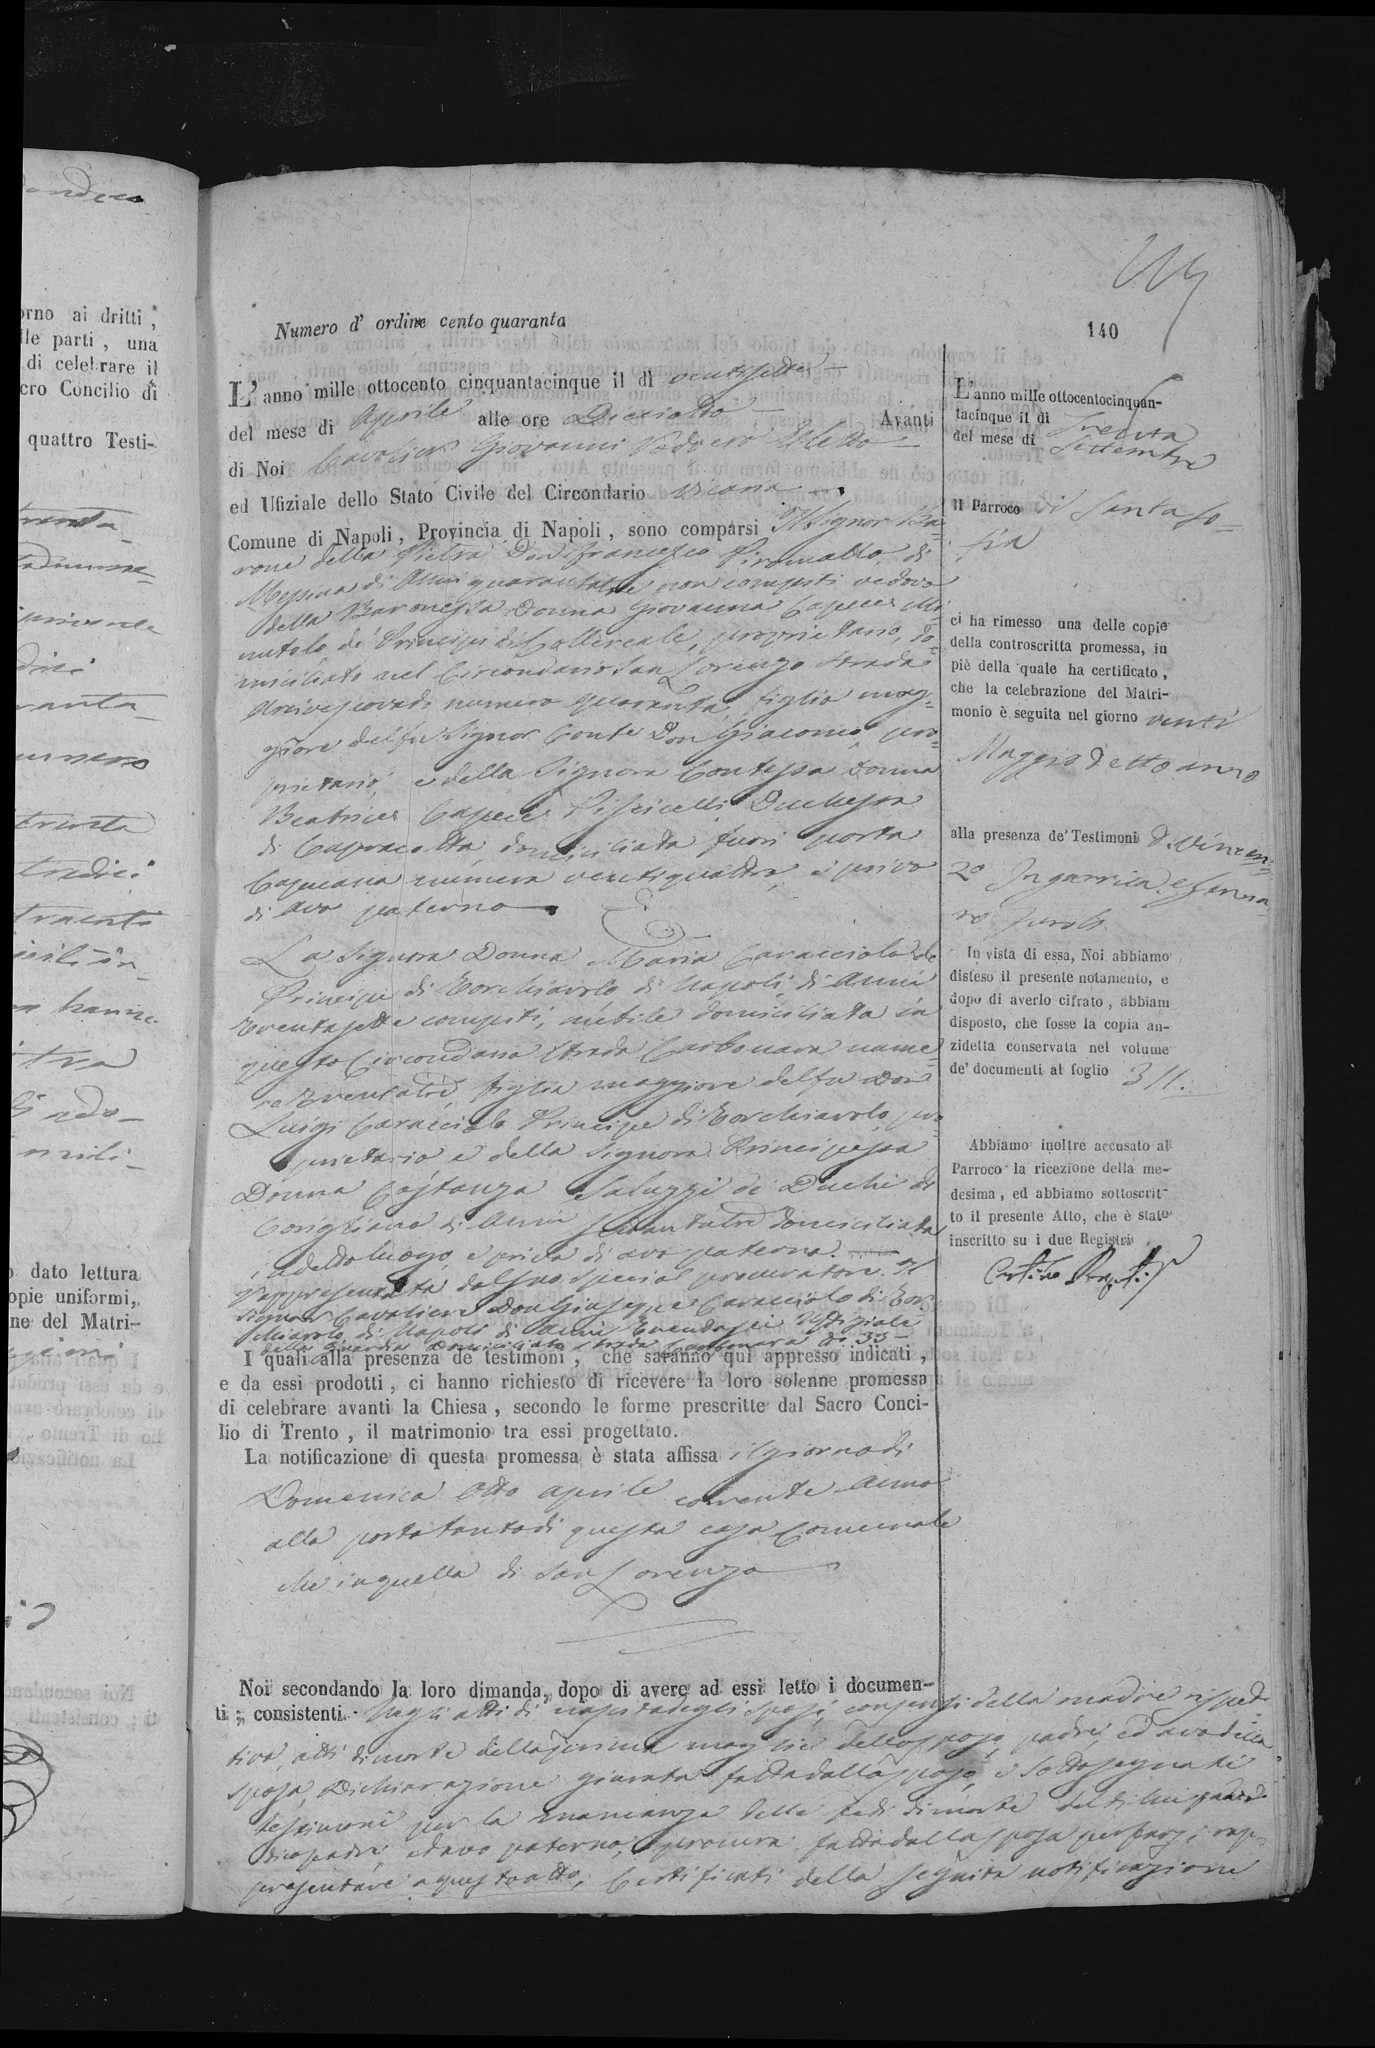 andrea
orno ai dritti,
lle parti, una
di celebrare il
cro Concilio di
quattro Testi-
trenta
trenta
tredici
hanno
dato lettura
opie uniformi,
ne del Matri-
Numero d' ordine cento quaranta
140
L'anno mille ottocento cinquantacinque il dì ventisette
del mese di Aprile alle ore Dieciotto Avanti
di Noi Cavaliere Giovanni
ed Ufiziale dello Stato Civile del Circondario Vicaria
Comune di Napoli, Provincia di Napoli, sono comparsi Il Signor Ba=
rone della Pietra Don Francesco Piromallo, di
Messina di Anni quarantatre non compiti vedovo
della Baronessa Donna Giovanna Capece Mi=
nutolo de' Principi di Collereale, proprietario, do=
miciliato nel Circondario San Lorenzo Strada
Arcivescovado numero quaranta, figlio mag=
giore del fu Signor Conte Don Giacomo, pro=
prietario, e della Signora Contessa Donna
Beatrice Capece Piscicelli Duchessa
di Capracotta domiciliata fuori porta
Capuana numero ventiquattro, e privo
di avo paterno
La Signora Donna Maria Caracciolo de
Principi di Torchiarolo di Napoli, di Anni
trentasette compiti, nubile domiciliata in
questo Circondario Strada Carbonara nume=
ro trentatre, figlia maggiore del fu Don
Luigi Caracciolo Principe di Torchiarolo, pro=
prietario e della Signora Principessa
Donna Costanza Saluzzi de Duchi di
Corigliano di Anni domiciliata
in detto luogo, e priva di avo paterno.
rappresentata dal suo special procuratore Il
Signor Cavaliere Don Giuseppe Caracciolo di Tor=
chiarolo di Napoli di Anni trentasei Uffiziale
della Guardia domiciliato strada Carbonara No 33
I quali alla presenza de' testimoni, che saranno qui appresso indicati,
e da essi prodotti, ci hanno richiesto di ricevere la loro solenne promessa
di celebrare avanti la Chiesa, secondo le forme prescritte dal Sacro Conci-
lio di Trento, il matrimonio tra essi progettato.
La notificazione di questa promessa è stata affissa il giorno di
Domenica Otto aprile corrente anno
alla porta tanto di questa casa Comunale
che in quella di San Lorenzo
Noi secondando la loro dimanda, dopo di avere ad essi letto i documen-
ti; consistenti Negli atti di nascita degli sposi, consensi della madre rispet=
tiva, atti di morte della prima moglie dello sposo, padre, ed avo della
sposa, Dichiarazione giurata fatta dallo sposo, e sottosegnati
testimoni per la mancanza delle fedi di morte del di lui
padre, ed avo paterno, procura fatta dalla sposa per farsi rap=
presentare a questo atto, Certificati della seguita notificazione
L'anno mille ottocentocinquan-
tacinque il di Trenta
del mese di Settembre
Il Parroco di Santa So=
fia
ci ha rimesso una delle copie
della controscritta promessa, in
piè della quale ha certificato,
che la celebrazione del Matri-
monio è seguita nel giorno venti
Maggio detto anno
alla presenza de' Testimoni D. Vincen=
zo Ingarrica e Genna=
ro
In vista di essa, Noi abbiamo
disteso il presente notamento, e
dopo di averlo cifrato, abbiam
disposto, che fosse la copia an-
zidetta conservata nel volume
de' documenti al foglio 311.
Abbiamo inoltre accusato al
Parroco la ricezione della me-
desima, ed abbiamo sottoscrit-
to il presente Atto, che è stato
inscritto su i due Registri